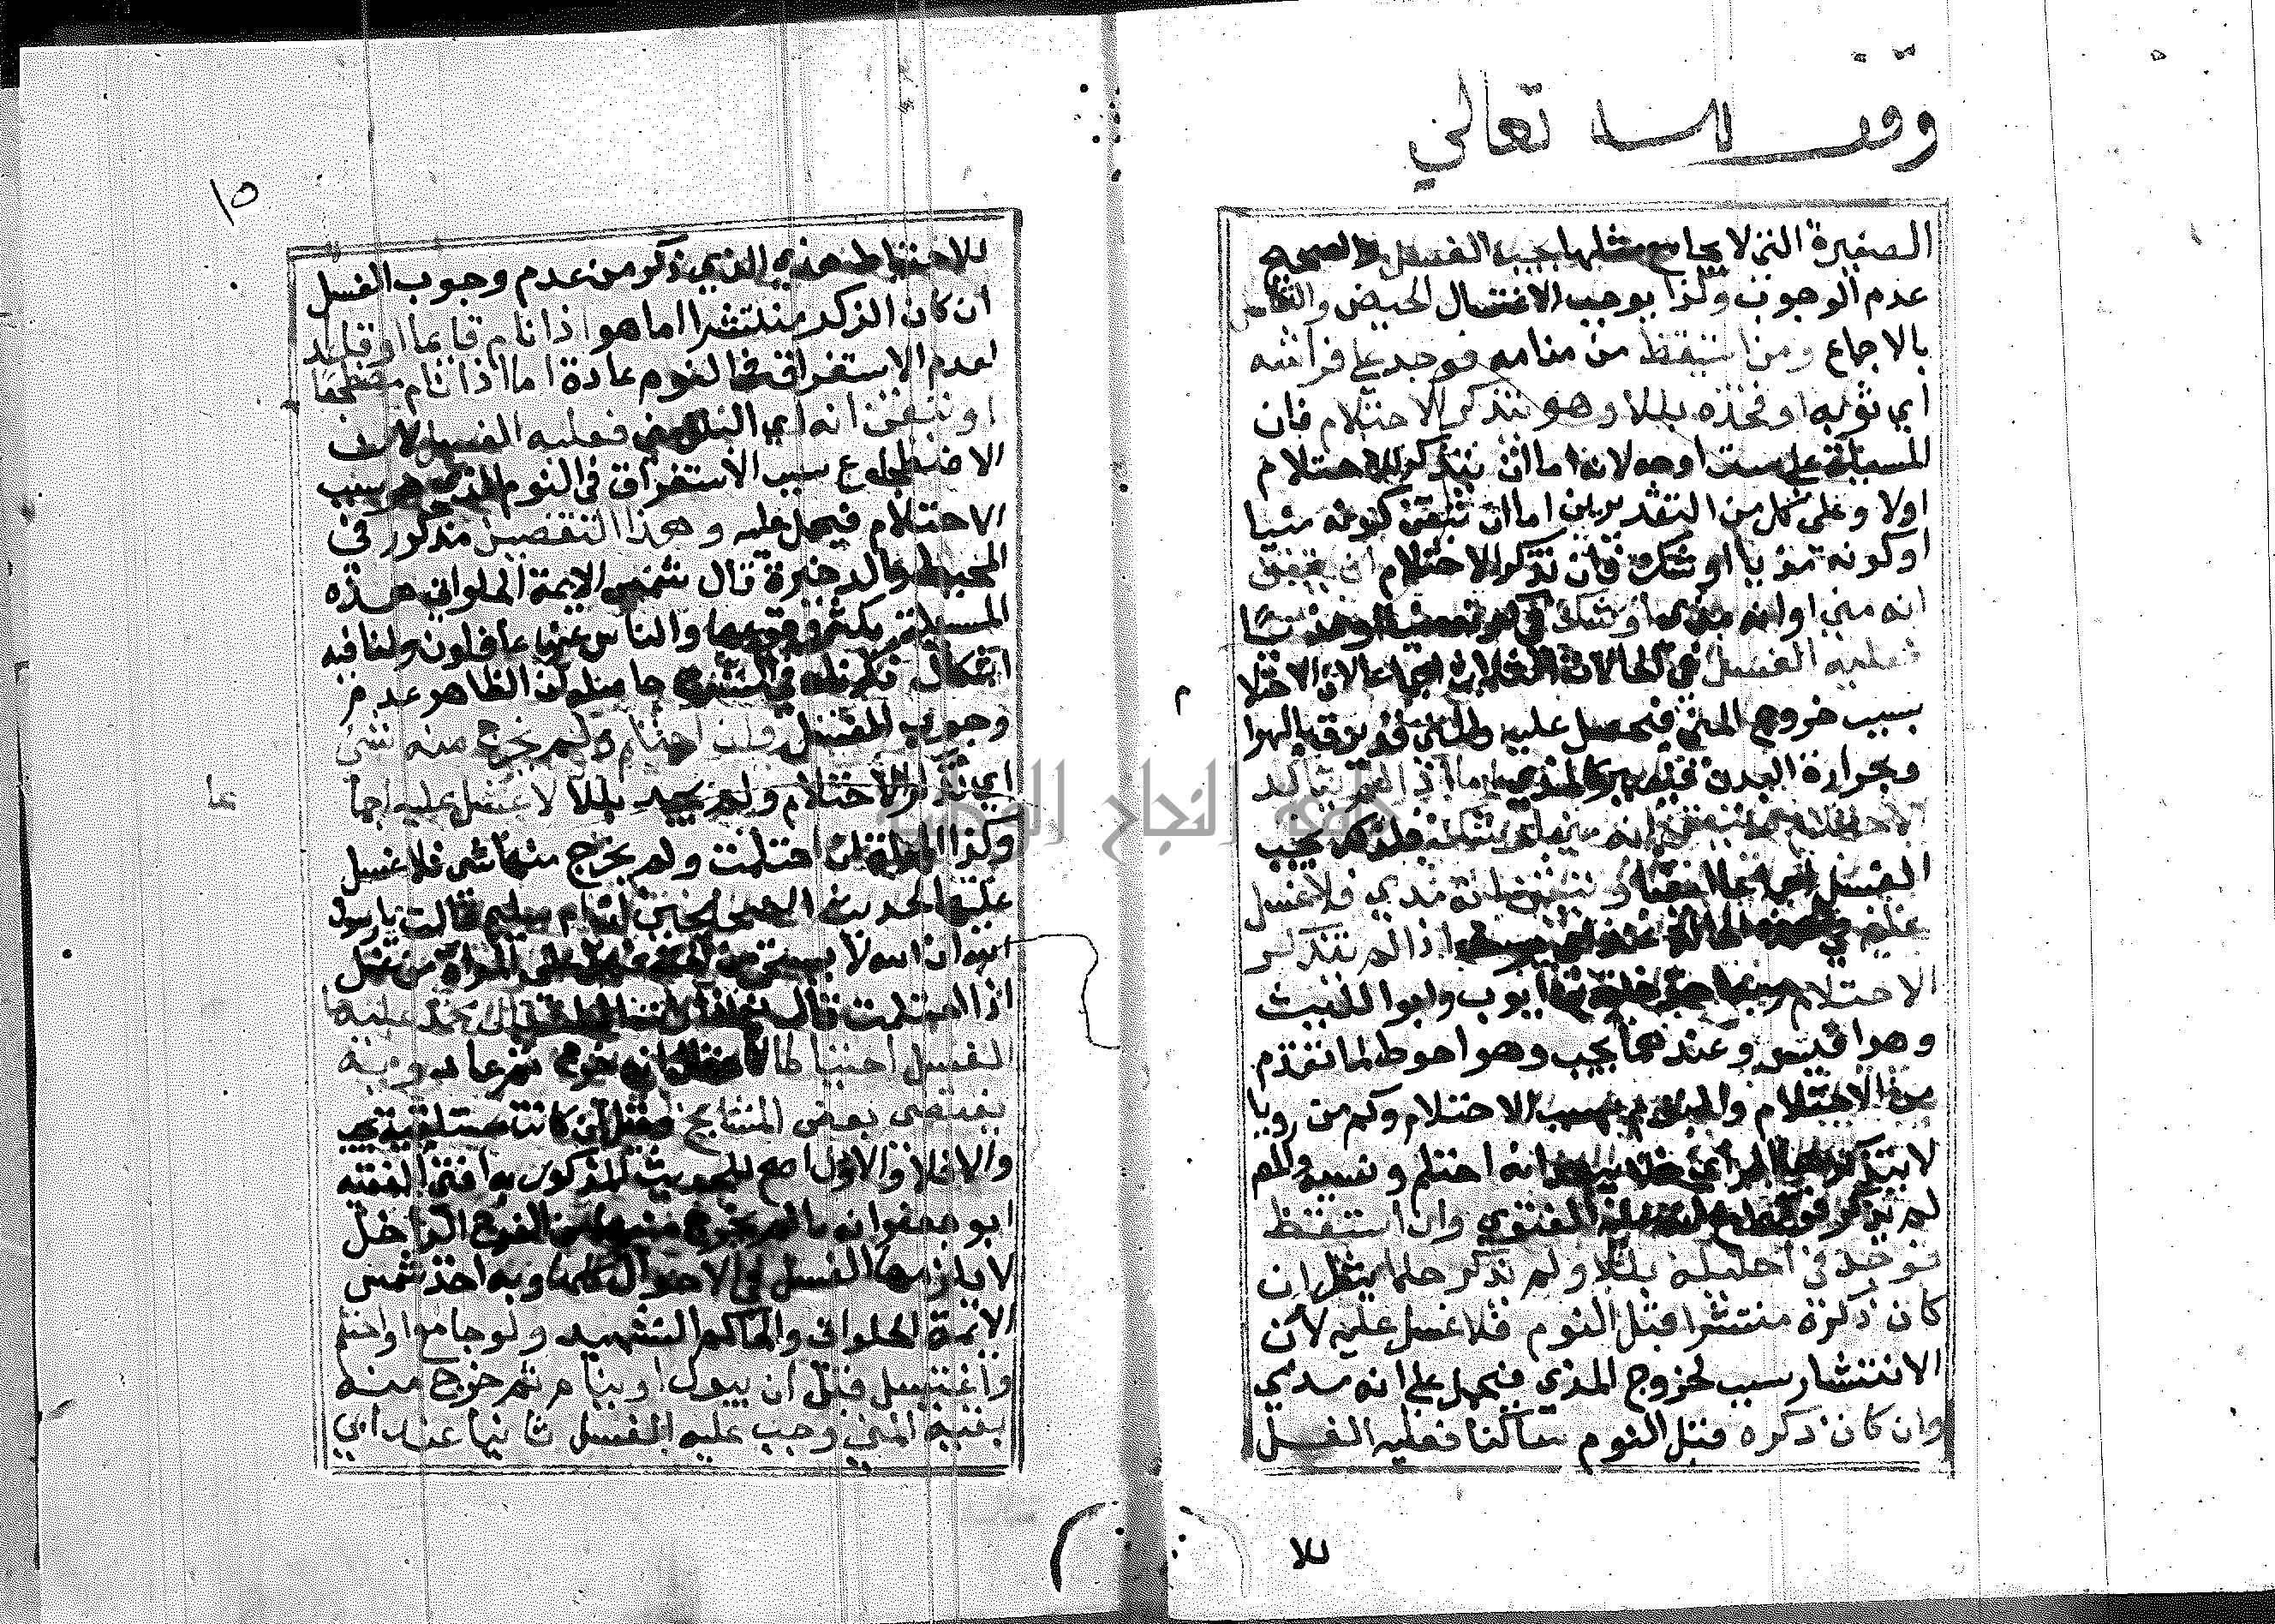 وقف لله تعالى
الصغيرة التي لا يجامع مثلها يجب الغسل والصحيح
عدم الوجوب وكذا يوجب الاغتسال الحيض والنفاس
بالاجماع ومن استيقظ من منامه فوجد على فراشه
اي ثوبه او فخذه بللا وهو يتذكر الاحتلام فان
المسئلة على ستة اوجه لانه اما ان يتذكر الاحتلام
اولا وعلى كل من التقديرين اما ان تيقن كونه منيا
او كونه مذيا او شك فان تذكر الاحتلام ان تيقن
انه مني او انه مذي او شك في
فعليه الغسل في الحالات اجماعا لان الاحتلا
م
بسبب خروج المني فيحمل عليه والمني قد يرق بالهوا
وبحرارة البدن فيصير كالمذي اما اذا لم يتذكر
الاحتلام تيقن انه مني او شك فكذلك يجب
الغسل اجماعا تيقن انه مذي فلا غسل
عليه في هذه الحالة اذا لم يتذكر
الاحتلام ايوب وابو الليث
وهو اقيس وعندهما يجب وهو احوط لما تقدم
من الاحتلام بسبب الاحتلام وكم من رويا
لا يتذكرها انه احتلم ونسيه والم
لم يتذكر الفتوى وان استيقظ
فوجد في احليله بللا ولم يتذكر حلما ينظر ان
كان ذكره منتشرا قبل النوم فلا غسل عليه لان
الانتشار سبب لخروج المذي فيحمل على انه مذي
وان كان ذكره قبل النوم ساكنا فعليه الغسل
للا
١٥
للاحتياط هذا الذي ذكر من عدم وجوب الغسل
ان كان الذكر منتشرا اما هو اذا نام قايما او قاعد
لعدم الاستغراق في النوم عادة اما اذا نام مضطجعا
او تيقن انه اي البلل مني فعليه الغسل لان
الاضطجاع سبب الاستغراق في النوم الذي هو سبب
الاحتلام فيحمل عليه وهذا التفصيل مذكور في
المحيط والذخيرة قال شمس الايمة الحلواني هذه
المسئلة يكثر وقوعها والناس عنها غافلون ولنا فيه
اشكال ذكرناه في الشرح حاصله ان الظاهر عدم
وجوب الغسل وان احتلم ولم يخرج منه شي
اي تذكر الاحتلام ولم يجد بللا لا غسل عليه اجما
عا
وكذا المراة ان احتلمت ولم يخرج منها شي فلا غسل
عليها لحديث الصحيحين ام سليم قالت يا رسول
الله ان الله لا يستحي من الحق هل على المراة من غسل
اذا احتلمت قال نعم اذا رات الماء وقال محمد عليها
الغسل احتياطا خرج ثم عاد وبه
يفتي بعض المشايخ وقيل ان كانت مستلقية يجب
والا فلا والاول اصح للحديث المذكور به افتى الفقيه
ابو جعفر انه ما لم يخرج منها من الفرج الداخل
لا يلزمها الغسل في الاحوال كلها وبه اخذ شمس
الائمة الحلواني والحاكم الشهيد ولو جامع او احتلم
واغتسل قبل ان يبول او ينام ثم خرج منه
بقية المني وجب عليه الغسل ثانيا عند ابي
جامعة النجاح الوطنية